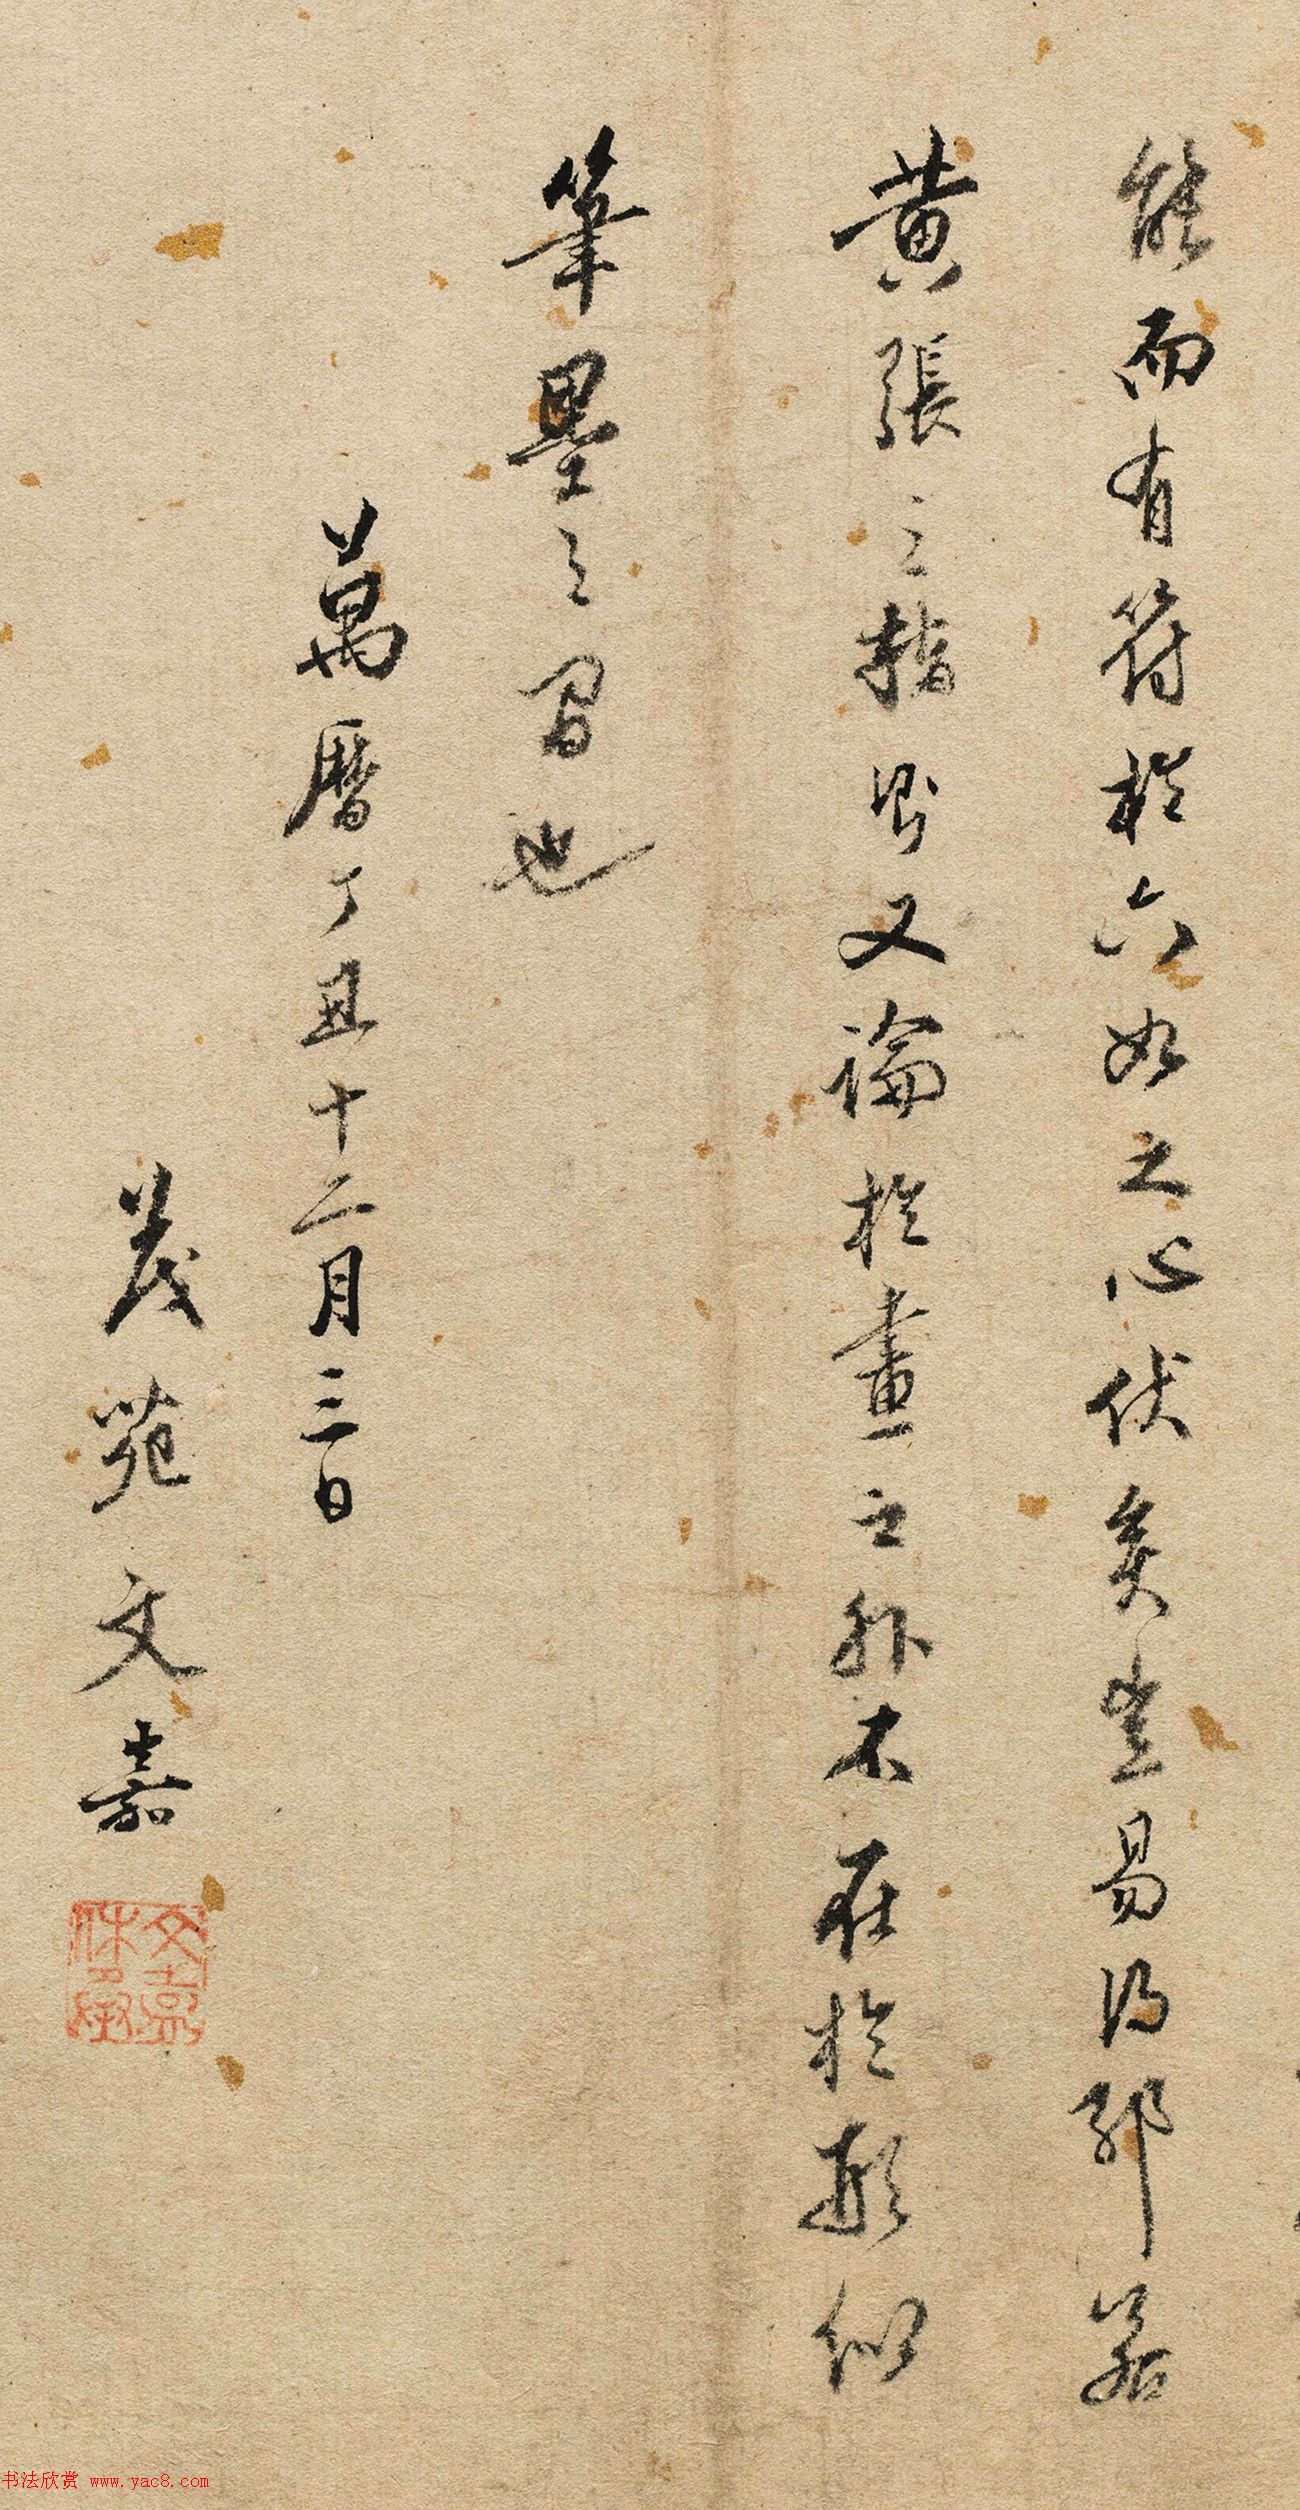 能而有符於六如之心伏矣豈易得耶若
黃張之指則又論於畫之外不在於形似
筆墨之間也
萬曆丁丑十二月三日
茂苑文嘉
文嘉休承
书法欣赏 www.yac8.com